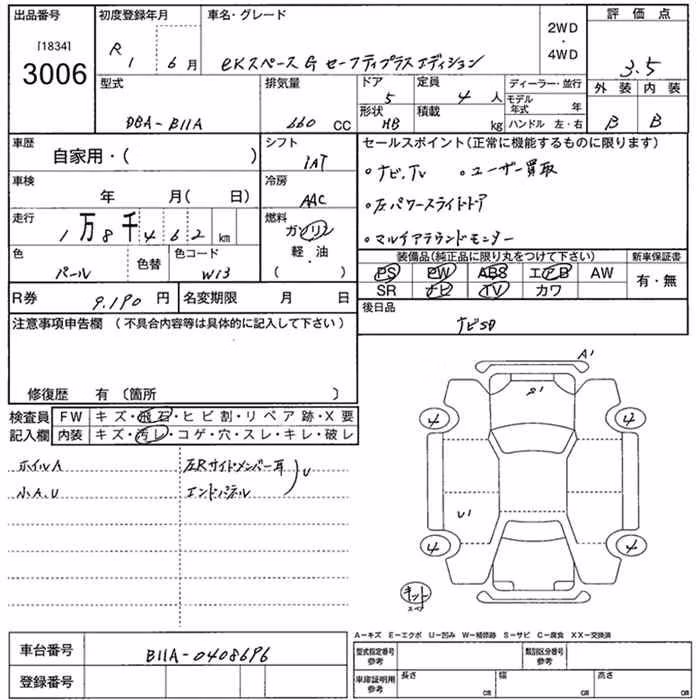 出品番号 初度登録年月 車名・グレード 2WD・4WD 評価点
[1834]
3006
R1 6月 eKスペース G セーフティプラスエディション 3.5
型式 排気量 ドア 5 定員 4人 ディーラー・並行 外装 内装
DBA-B11A 660 CC 形状 HB 積載 kg モデル年式 年 B B
ハンドル 左・右
車歴 自家用・( ) シフト IAT セールスポイント(正常に機能するものに限ります)
車検 年 月( 日) 冷房 AAC ・ナビ、TV ・ユーザー買取
走行 1万8千462km 燃料 ガソリン ・左パワースライドドア
軽・油 ・マルチアラウンドモニター
( )
色 パール 色替 色コード W13 装備品(純正品に限り丸をつけて下さい) 新車保証書
PS PW ABS エアB AW 有・無
R券 9,190円 名変期限 月 日 SR ナビ TV カワ
注意事項申告欄(不具合内容等は具体的に記入して下さい) 後日品
ナビSD
修復歴 有(箇所 )
検査員 FW キズ・飛石・ヒビ割・リペア跡・X要
記入欄 内装 キズ・汚レ・コゲ・穴・スレ・キレ・破レ
ホイルA 左Rサイドメンバー耳
小A.U エンドパネル U
A'
4 4
U'
4 4
キット
A−キズ E−エクボ U−凹み W−補修跡 S−サビ C−腐食 XX−交換済
車台番号 B11A-0408696 型式指定番号 参考 類別区分番号 参考
登録番号 車庫証明用 参考 長さ CM 幅 CM 高さ CM